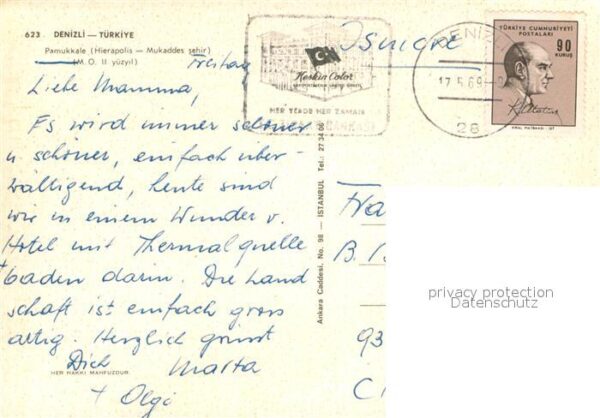 623 DENİZLİ — TÜRKİYE
Pamukkale (Hierapolis — Mukaddes şehir)
(M.O. II yüzyıl)
Freitag
Liebe Mamma,
Es wird immer schöner
u schöner, einfach über-
wältigend, heute sind
wir in einem Wunder v.
Hotel mit Thermalquelle
+ baden darin. Die Land
schaft ist einfach gross
artig. Herzlich grüsst
Dich Marta
+ Olgi
HER HAKKI MAHFUZDUR
Keskin Color
HER YERDE HER ZAMAN
BANKASI
Ankara Caddesi, No. 98 — İSTANBUL Tel.: 27 34 06
DENİZLİ
17.5.69
28
TÜRKİYE CUMHURİYETİ
POSTALARI
90
KURUŞ
K. Atatürk
Fra
B.
93
C
privacy protection
Datenschutz